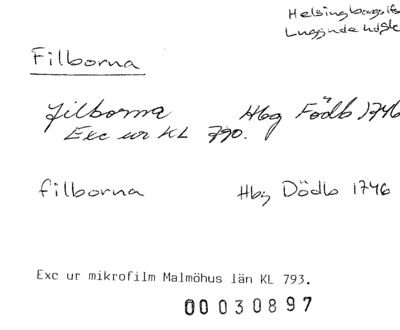 Helsingborgs
Luggude hd
Filborna
filborna Hbg Födb 1746
Exc ur KL 790.
filborna Hbg Dödb 1746
Exc ur mikrofilm Malmöhus län KL 793.
00030897